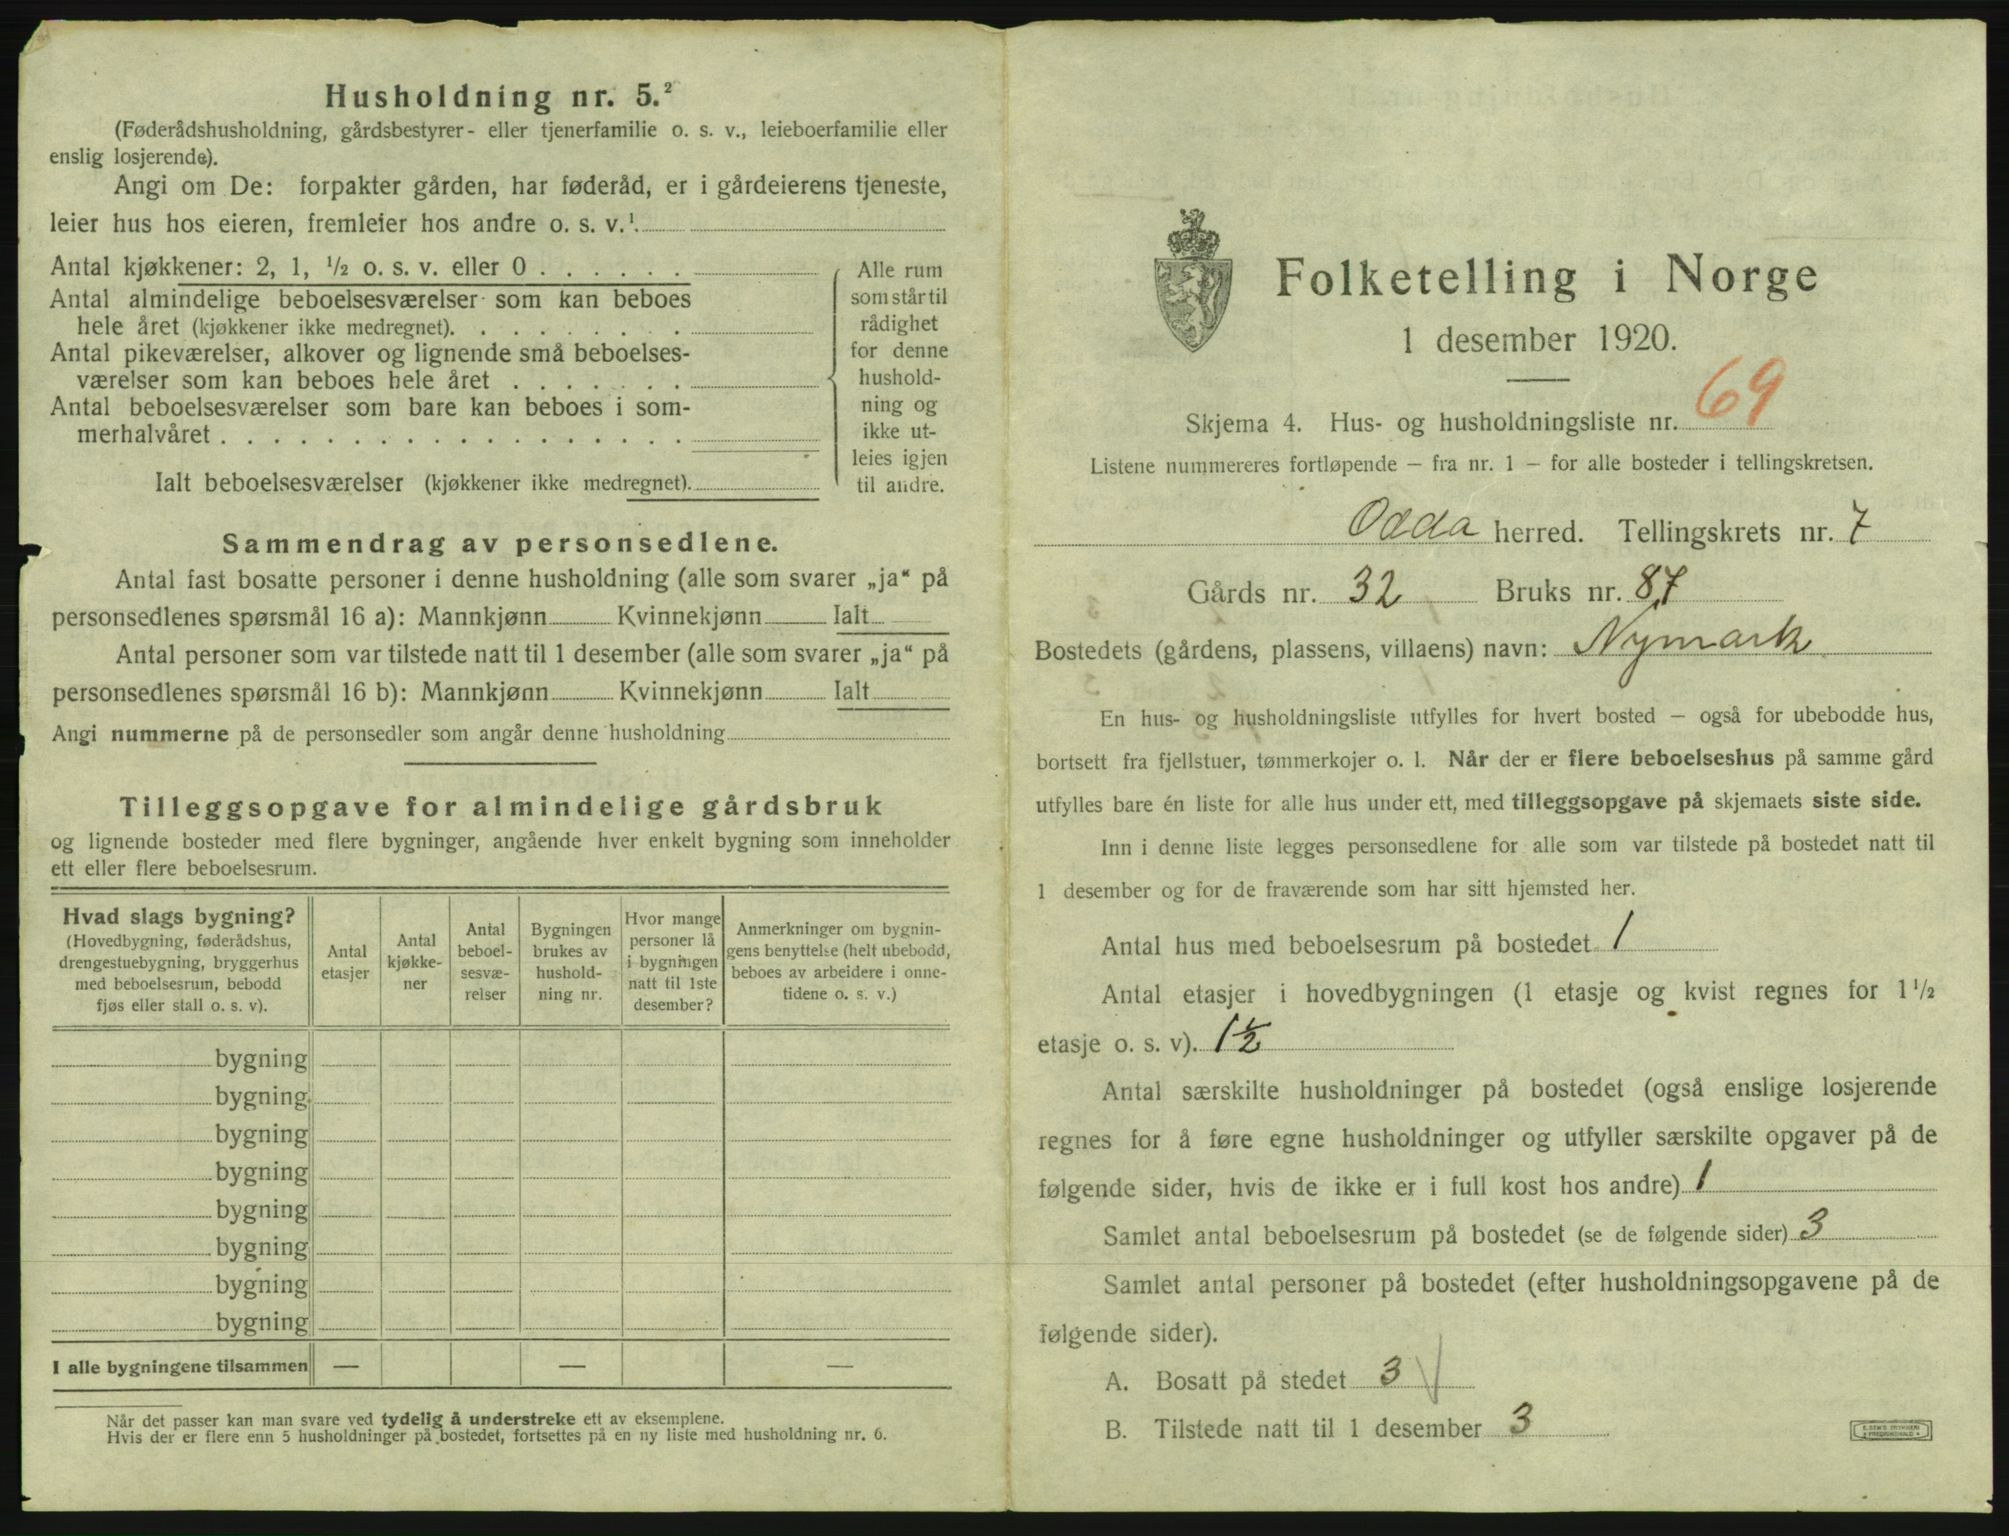 Husholdning nr. 5.²
(Føderådshusholdning, gårdsbestyrer- eller tjenerfamilie o. s. v., leieboerfamilie eller
enslig losjerende).
Angi om De: forpakter gården, har føderåd, er i gårdeierens tjeneste,
leier hus hos eieren, fremleier hos andre o. s. v.¹.
Antal kjøkkener: 2, 1, ½ o. s. v. eller 0 . . . . . .
Antal almindelige beboelsesværelser som kan beboes
hele året (kjøkkener ikke medregnet). . . . . . . . .
Antal pikeværelser, alkover og lignende små beboelses-
værelser som kan beboes hele året . . . . . . .
Antal beboelsesværelser som bare kan beboes i som-
merhalvåret . . . . . . . . . . . . . . . . . .
Ialt beboelsesværelser (kjøkkener ikke medregnet).
Alle rum
som står til
rådighet
for denne
hushold-
ning og
ikke ut-
leies igjen
til andre.
Sammendrag av personsedlene.
Antal fast bosatte personer i denne husholdning (alle som svarer „ja“ på
personsedlenes spørsmål 16 a): Mannkjønn Kvinnekjønn Ialt
Antal personer som var tilstede natt til 1 desember (alle som svarer „ja“ på
personsedlenes spørsmål 16 b): Mannkjønn Kvinnekjønn Ialt
Angi nummerne på de personsedler som angår denne husholdning
Tilleggsopgave for almindelige gårdsbruk
og lignende bosteder med flere bygninger, angående hver enkelt bygning som inneholder
ett eller flere beboelsesrum.
Hvad slags bygning?
(Hovedbygning, føderådshus,
drengestuebygning, bryggerhus
med beboelsesrum, bebodd
fjøs eller stall o. s. v).
Antal
etasjer
Antal
kjøkke-
ner
Antal
beboel-
sesvæ-
relser
Bygningen
brukes av
hushold-
ning nr.
Hvor mange
personer lå
i bygningen
natt til 1ste
desember?
Anmerkninger om bygnin-
gens benyttelse (helt ubebodd,
beboes av arbeidere i onne-
tidene o. s. v.)
bygning
bygning
bygning
bygning
bygning
bygning
bygning
bygning
I alle bygningene tilsammen — — —
Når det passer kan man svare ved tydelig å understreke ett av eksemplene.
Hvis der er flere enn 5 husholdninger på bostedet, fortsettes på en ny liste med husholdning nr. 6.
Folketelling i Norge
1 desember 1920.
Skjema 4. Hus- og husholdningsliste nr. 69
Listene nummereres fortløpende – fra nr. 1 – for alle bosteder i tellingskretsen.
Odda herred. Tellingskrets nr. 7
Gårds nr. 32 Bruks nr. 87
Bostedets (gårdens, plassens, villaens) navn: Nymark
En hus- og husholdningsliste utfylles for hvert bosted – også for ubebodde hus,
bortsett fra fjellstuer, tømmerkojer o. l. Når der er flere beboelseshus på samme gård
utfylles bare én liste for alle hus under ett, med tilleggsopgave på skjemaets siste side.
Inn i denne liste legges personsedlene for alle som var tilstede på bostedet natt til
1 desember og for de fraværende som har sitt hjemsted her.
Antal hus med beboelsesrum på bostedet 1
Antal etasjer i hovedbygningen (1 etasje og kvist regnes for 1½
etasje o. s. v). 1½
Antal særskilte husholdninger på bostedet (også enslige losjerende
regnes for å føre egne husholdninger og utfyller særskilte opgaver på de
følgende sider, hvis de ikke er i full kost hos andre) 1
Samlet antal beboelsesrum på bostedet (se de følgende sider) 3
Samlet antal personer på bostedet (efter husholdningsopgavene på de
følgende sider).
A. Bosatt på stedet 3
B. Tilstede natt til 1 desember 3